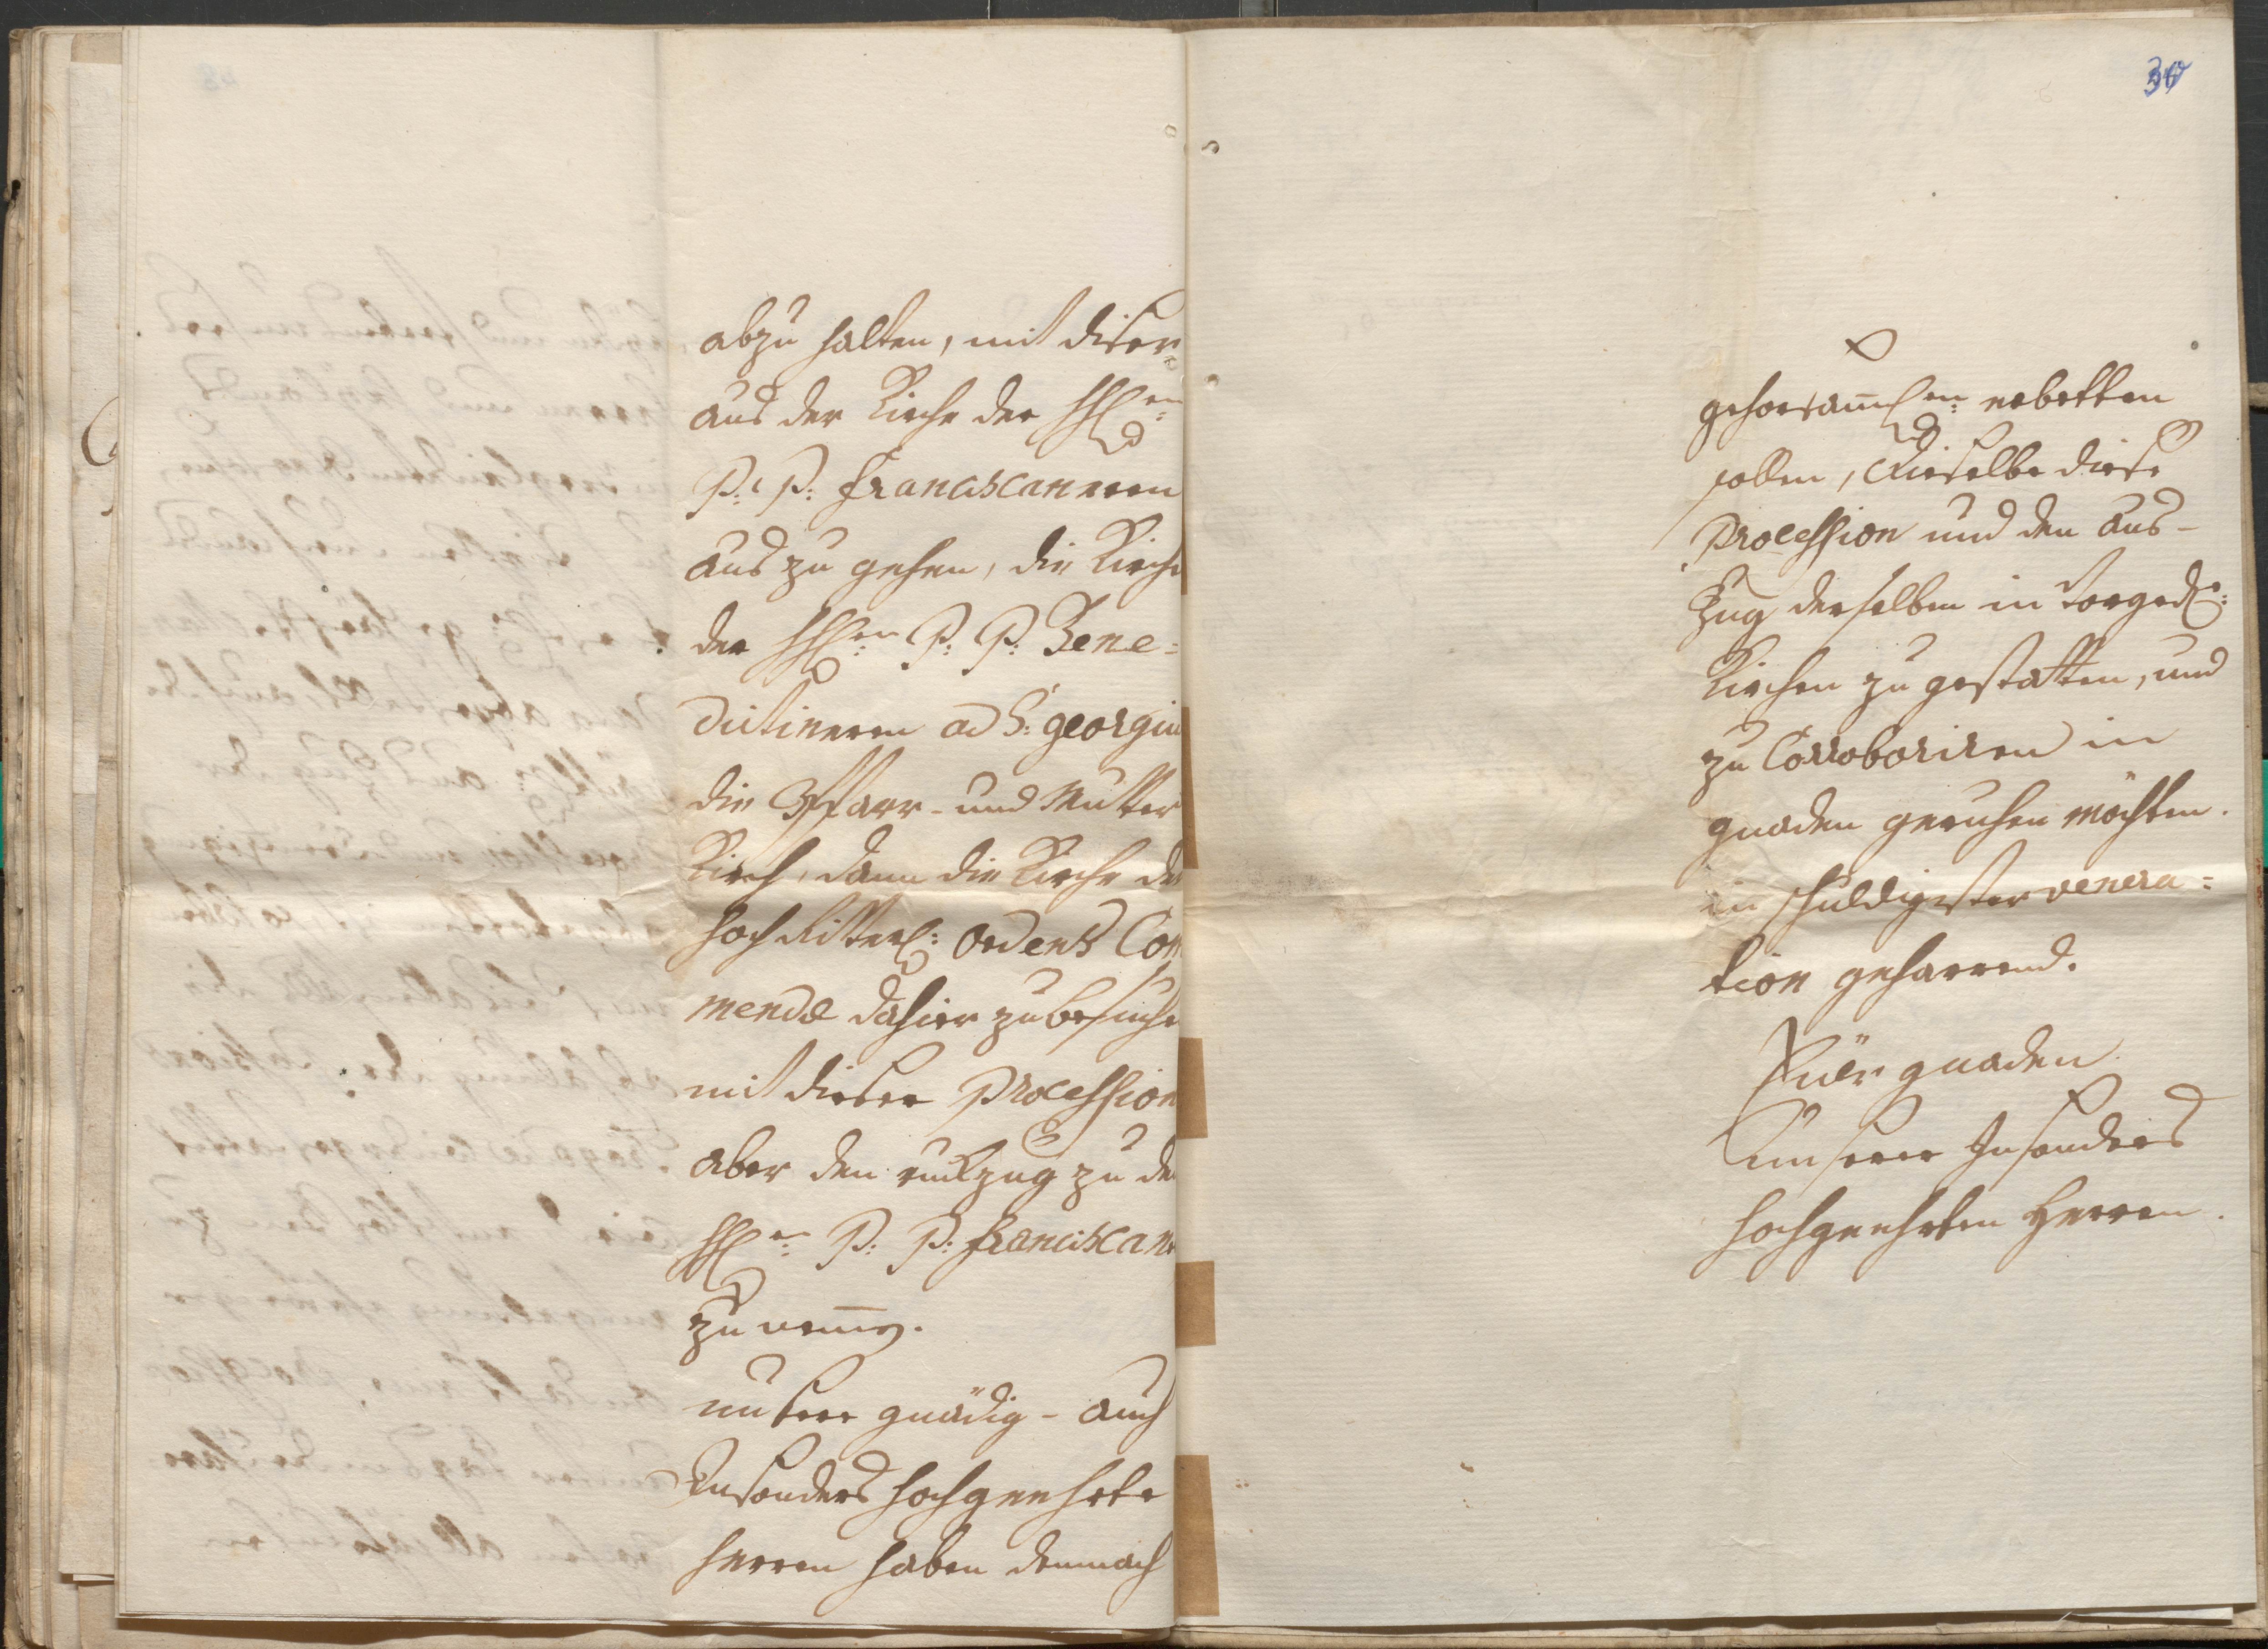 abzu halten, mit diser
aus der Kirche der HH:en
P: P: Franciscaneren
aus zu gehen, die Kirche
der HH:en P: P: Bene=
dictineren ad S: georgiu
die Pfarr- und Mutter
Kirch, dann die Kirche de
hoch Ritterl: ordens Com
mendæ dahier zu besuche
mit dieser Procession
aber den ruckzug zu de
HH:en P: P: Franciscane
zu nem̅en.
unsere gnädig- auch
Insonders hochgeehrte
herren haben demnach
30
gehorsam̅l:en erbetten
sollen, dieselbe diese
Procession und den aus-
Zug derselben in vorged:en
Kirchen zu gestatten, und
zu Corroboriren in
gnaden geruhen möchten.
in schuldigster venera=
tion geharrend.
Euer gnaden
Unserer Insonders
hochgeehrten Herren.